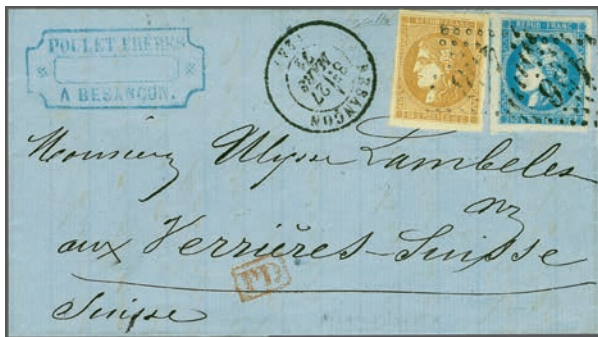 POULET FRÈRES
A BESANÇON.
BESANCON
REPUB. FRANC.
REPUB. FRANC.
Monsieur Ulysse Lambelet
aux Verrières-Suisse
PD
Suisse